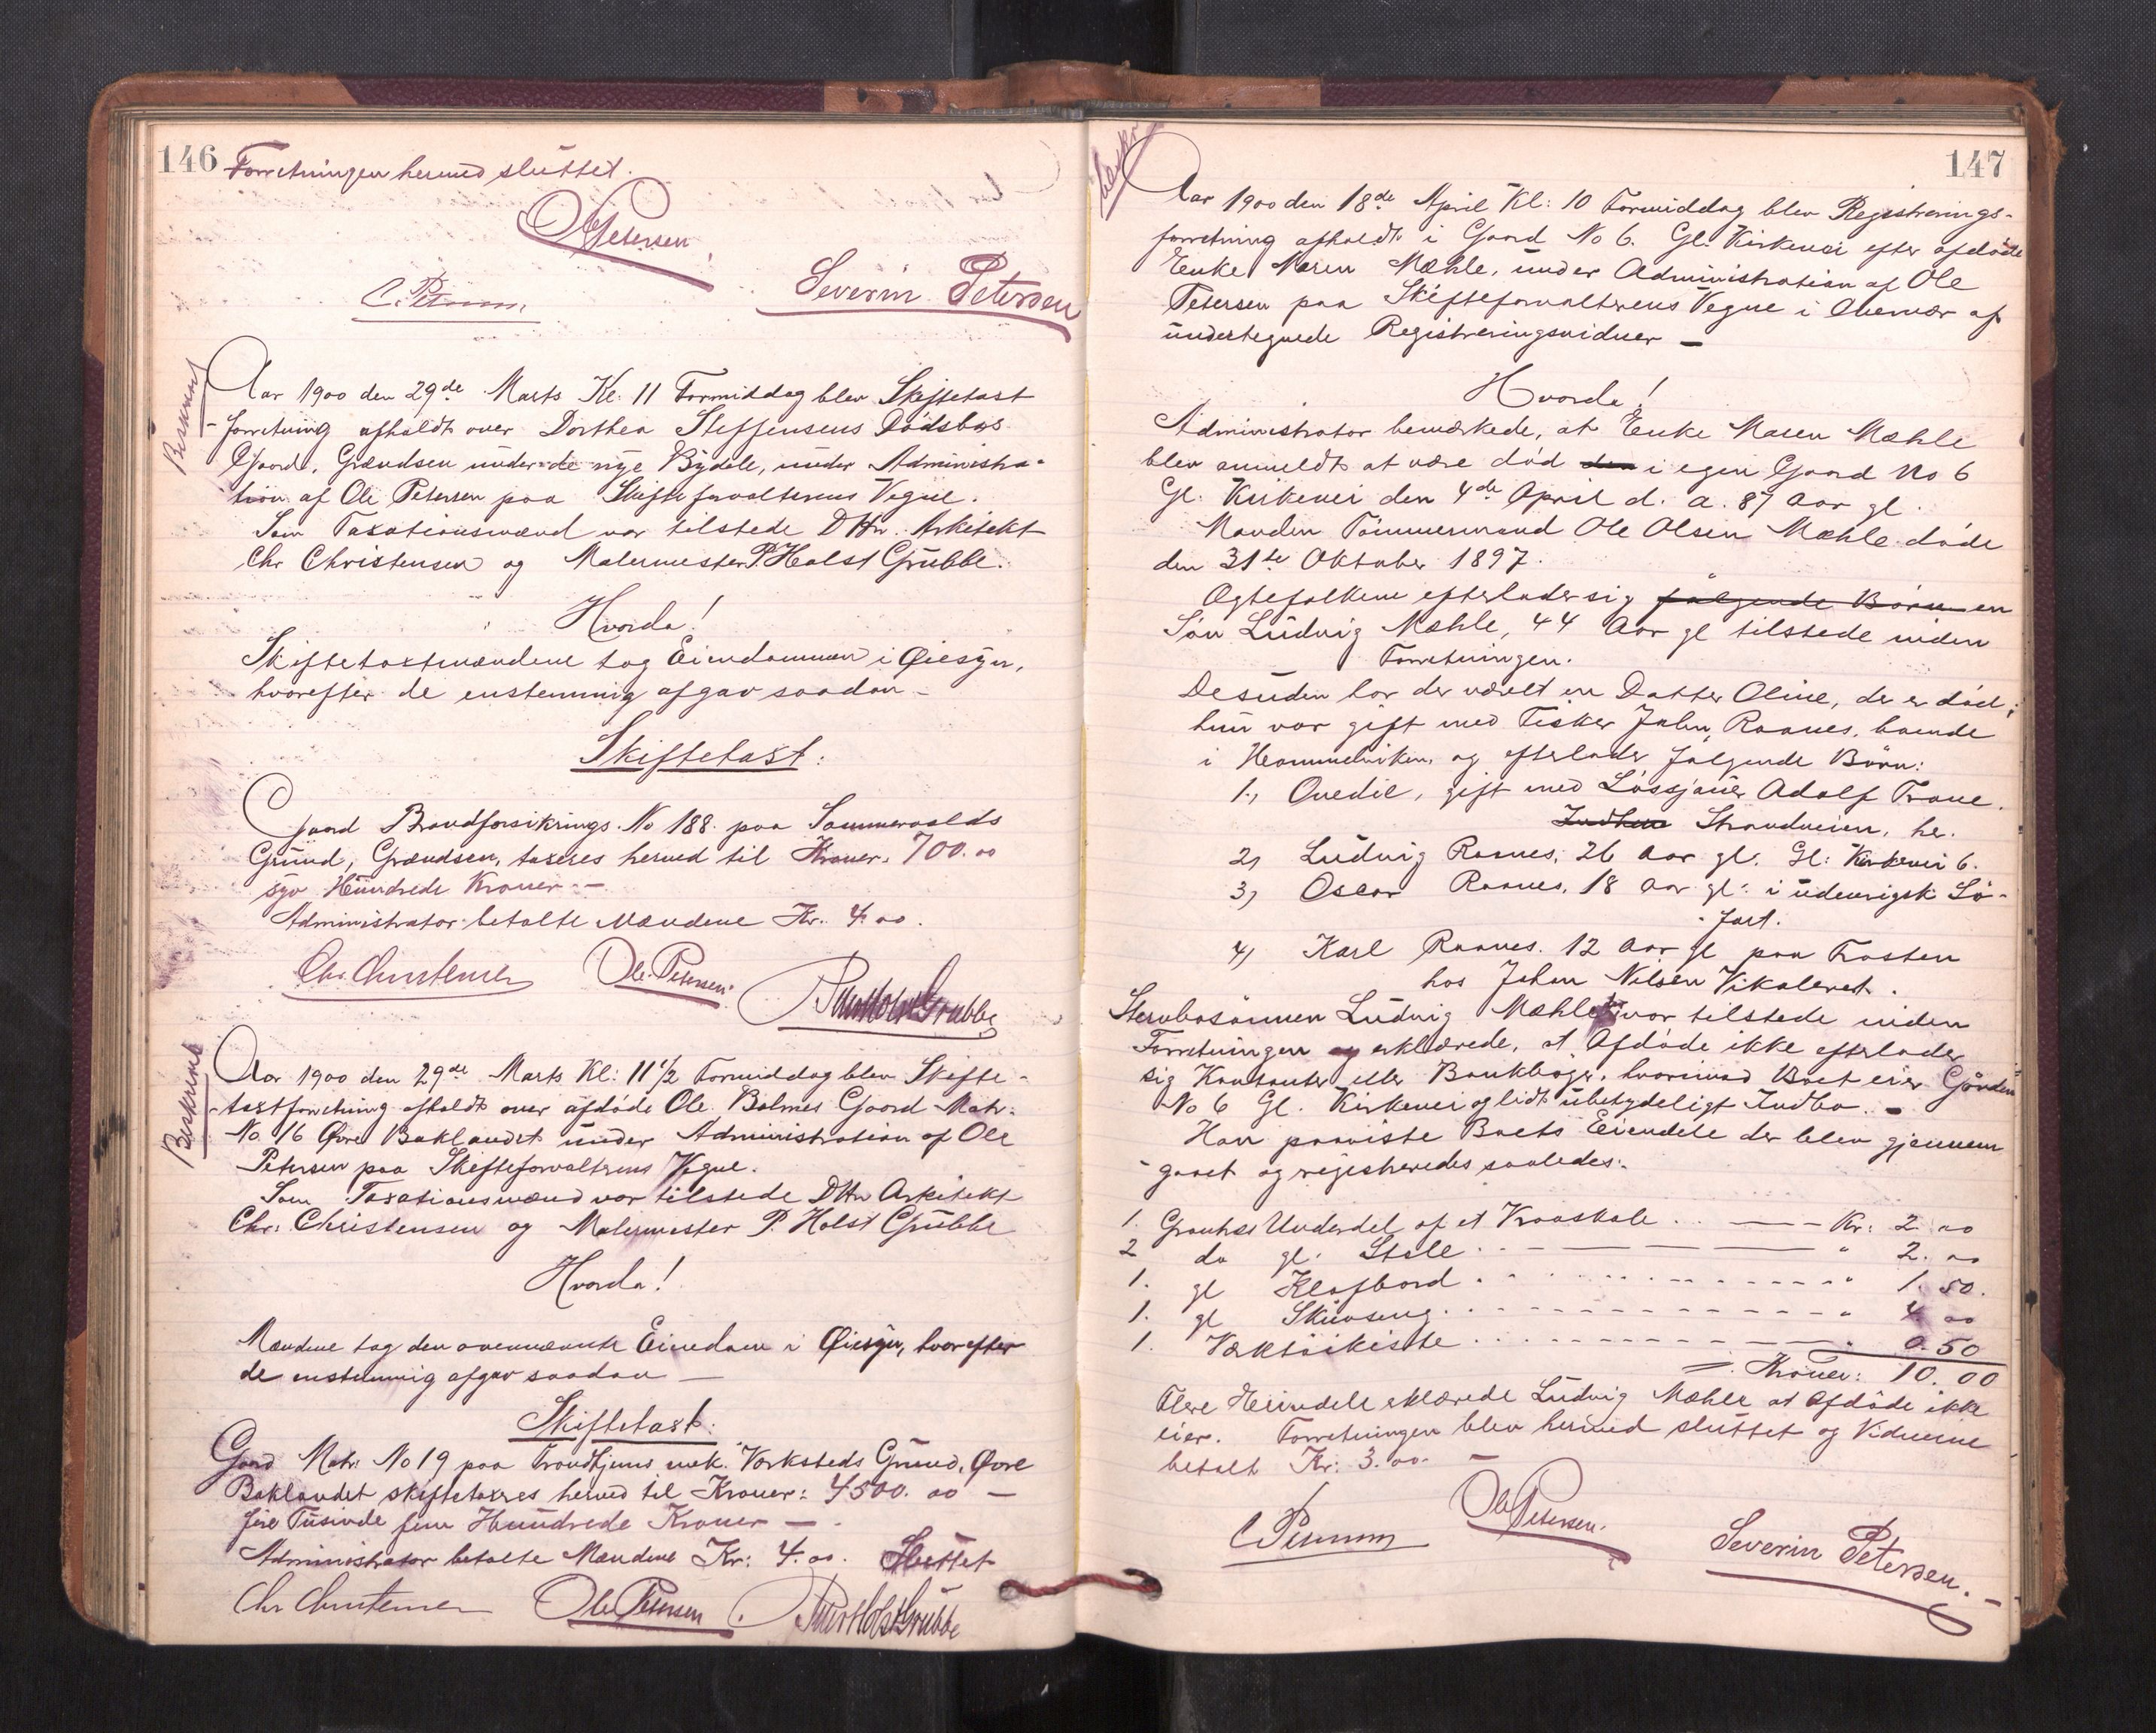 146
Forretningen hermed sluttet.
Ole Petersen
Severin Petersen
Beskrevet
Aar 1900 den 29de Marts Kl: 11 Formiddag blev Skiftetaxt
-forretning afholdt over Dorthea Steffensens Dødsbos
Gaard, Grændsen under de nye Bydele, under Administra-
tion af Ole Petersen paa Skifteforvalterens Vegne.
Som Taxationsmænd var tilstede DHrr. Arkitekt
Chr Christensen og Malermester P. Holst Grubbe.
Hvorda!
Skiftetaxtmændene tog Eiendommen i Øiesyn,
hvorefter de enstemmig afgav saadan –
Skiftetaxt:
Gaard Brandforsikrings. No 188. paa Sommervolds
Grund, Grændsen, taxeres herved til Kroner. 700.00
syv Hundrede Kroner –
Administrator betalte Mændene Kr. 4.00.
Chr. Christensen Ole Petersen P Holst Grubbe
Beskrevet
Aar 1900 den 29de Marts Kl: 11 1/2 Formiddag blev Skifte-
-taxtforretning afholdt over afdøde Ole Bolmes Gaard Matr.
No. 16 Øvre Baklandet under Administration af Ole
Petersen paa Skifteforvalterens Vegne.
Som Taxationsmænd var tilstede DHrr Arkitekt
Chr. Christensen og Malermester P. Holst Grubbe
Hvorda!
Mændene tog den ovennævnte Eiendom i Øiesyn, hvorefter
de enstemmig afgav saadan –
Skiftetaxt:
Gaard Matr: No 19 paa Trondhjems mek. Værksteds Grund, Øvre
Baklandet skiftetaxeres herved til Kroner: 4500.00 –
fire Tusinde fem Hundrede Kroner –
Administrator betalte Mændene Kr: 4.00. Sluttet
Chr Christensen Ole Petersen P Holst Grubbe
147
Aar 1900 den 18de April Kl: 10 Formiddag blev Registrerings-
forretning afholdt i Gaard No 6. Gl. Kirkevei efter afdøde
Enke Maren Mæhle, under Administration af Ole
Petersen paa Skifteforvalterens Vegne i Overvær af
undertegnede Registreringsvidner –
Hvorda!
Administrator bemærkede, at Enke Maren Mæhle
blev anmeldt at være død den i egen Gaard No 6
Gl. Kirkevei den 4de April d. a. 87 Aar gl.
Manden Tømmermand Ole Olsen Mæhle døde
den 31te Oktober 1897.
Ægtefolkene efterlader sig følgende Børn en
Søn Ludvig Mæhle, 44 Aar gl tilstede under
Forretningen.
Desuden har der været en Datter Oline, der er død;
hun var gift med Fisker Johan Raanes, boende
i Hommelviken, og efterlader følgende Børn:
1., Ovedie, gift med Løssjauer Adolf Trane.
Strandveien, her.
2, Ludvig Raanes, 26 Aar gl. Gl: Kirkevei 6.
3, Oscar Raanes, 18 Aar gl: i udenrigsk Sø-
-fart.
4, Karl Raanes. 12 Aar gl paa Frosten
hos Johan Nilsen Vikaleret.
Stervbosønnen Ludvig Mæhle var tilstede under
Forretningen og erklærede, at Afdøde ikke efterlader
sig Kontanter eller Bankbøger, hvorimod Boet eier Gaarden
No 6 Gl. Kirkevei og lidt ubetydeligt Indbo. –
Han paaviste Boets Eiendele der blev gjennem
-gaaet og registreredes saaledes:
1. Underdel af et Kr: 2.00
2 do gl. Stole " 2.00
1. gl Klafbord " 1.50.
1. gl Skuvseng " 4.00
1. Værktøikiste " 0.50
Kroner: 10.00
Flere Eiendele erklærede Ludvig Mæhle at Afdøde ikke
eier. Forretningen blev hermed sluttet og Vidnerne
betalt Kr: 3.00. –
Ole Petersen
Severin Petersen.